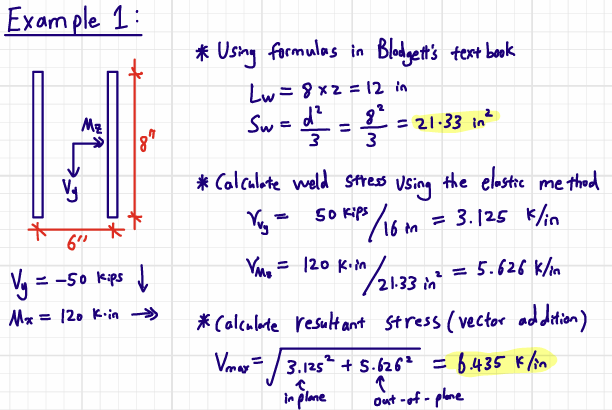 Example 1:
* Using formulas in Blodgett's text book
Lw = 8 x 2 = 12 in
Sw = d²/3 = 8²/3 = 21.33 in²
Mz
Vy
8"
6"
Vy = -50 kips ↓
Mx = 120 k·in ↠
* Calculate weld stress using the elastic method
VVy = 50 kips / 16 in = 3.125 k/in
VMz = 120 k·in / 21.33 in² = 5.626 k/in
* Calculate resultant stress (vector addition)
Vmax = √3.125² + 5.626² = 6.435 k/in
in plane
out-of-plane